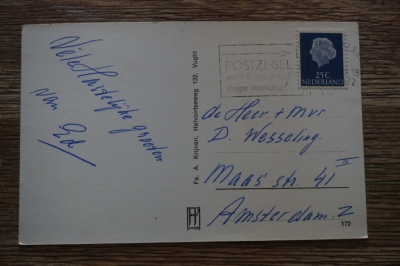 Vele Hartelijke groeten
van Ed
Fa. A. Krijnen, Helvoirtseweg 122, Vught
POSTZEGEL
25C
NEDERLAND
de Heer + mvr.
D. Wesseling
Maas str. 41 III
Amsterdam-Z
172